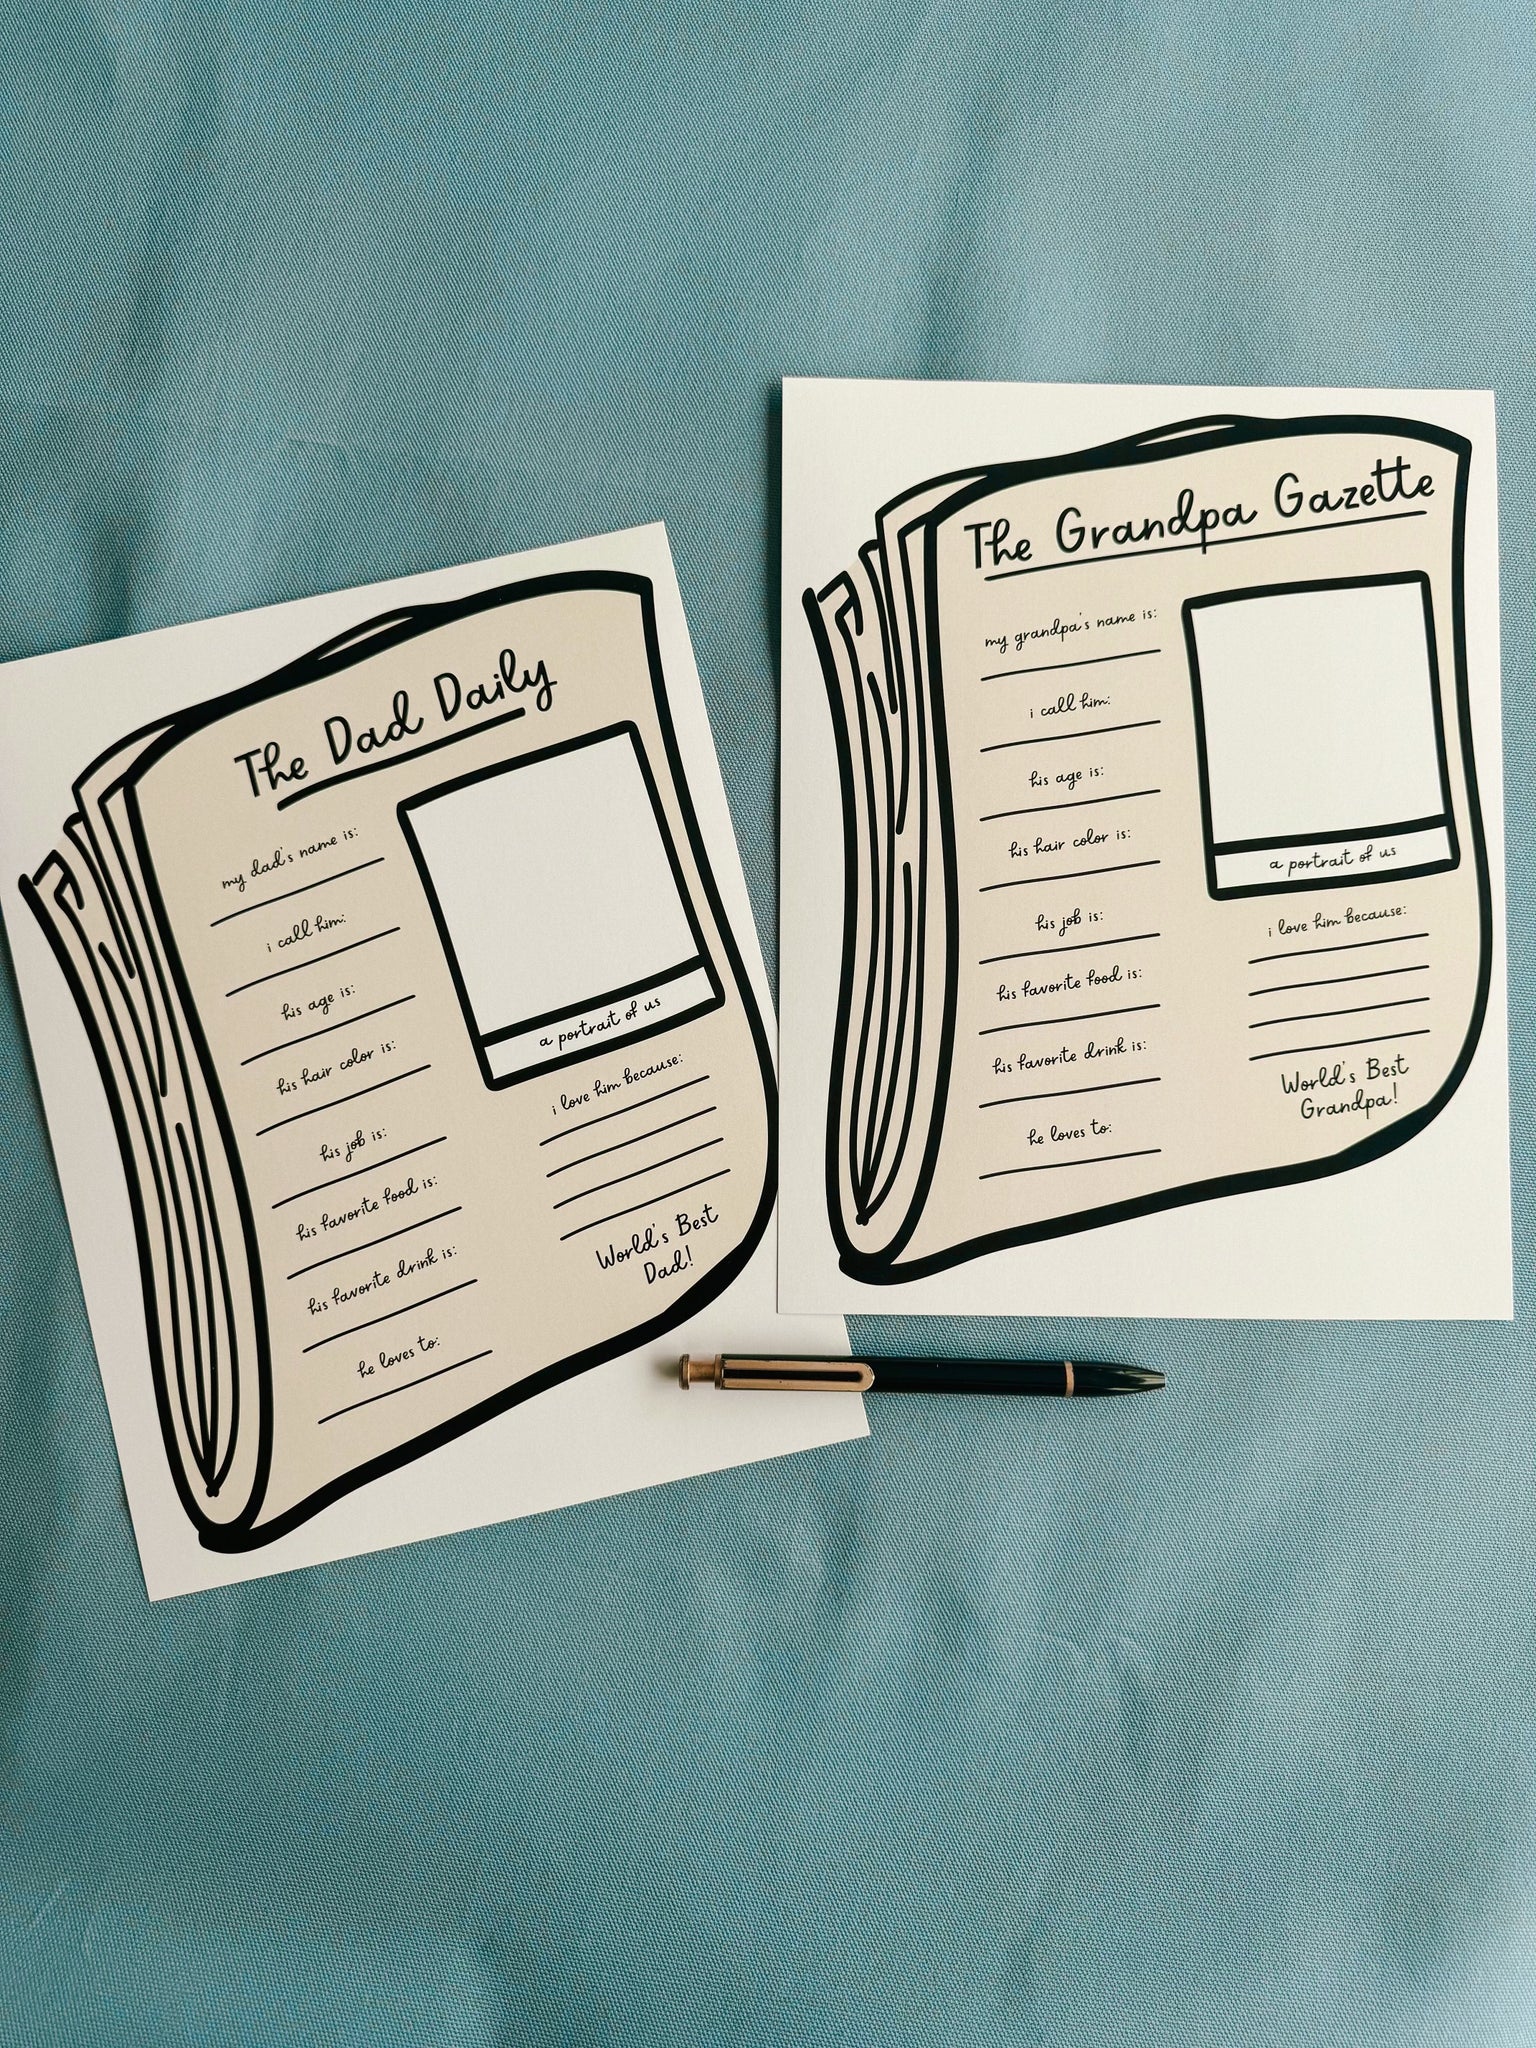 The Dad Daily
my dad's name is:
i call him:
his age is:
his hair color is:
his job is:
his favorite food is:
his favorite drink is:
he loves to:
a portrait of us
i love him because:
World's Best
Dad!
The Grandpa Gazette
my grandpa's name is:
i call him:
his age is:
his hair color is:
his job is:
his favorite food is:
his favorite drink is:
he loves to:
a portrait of us
i love him because:
World's Best
Grandpa!